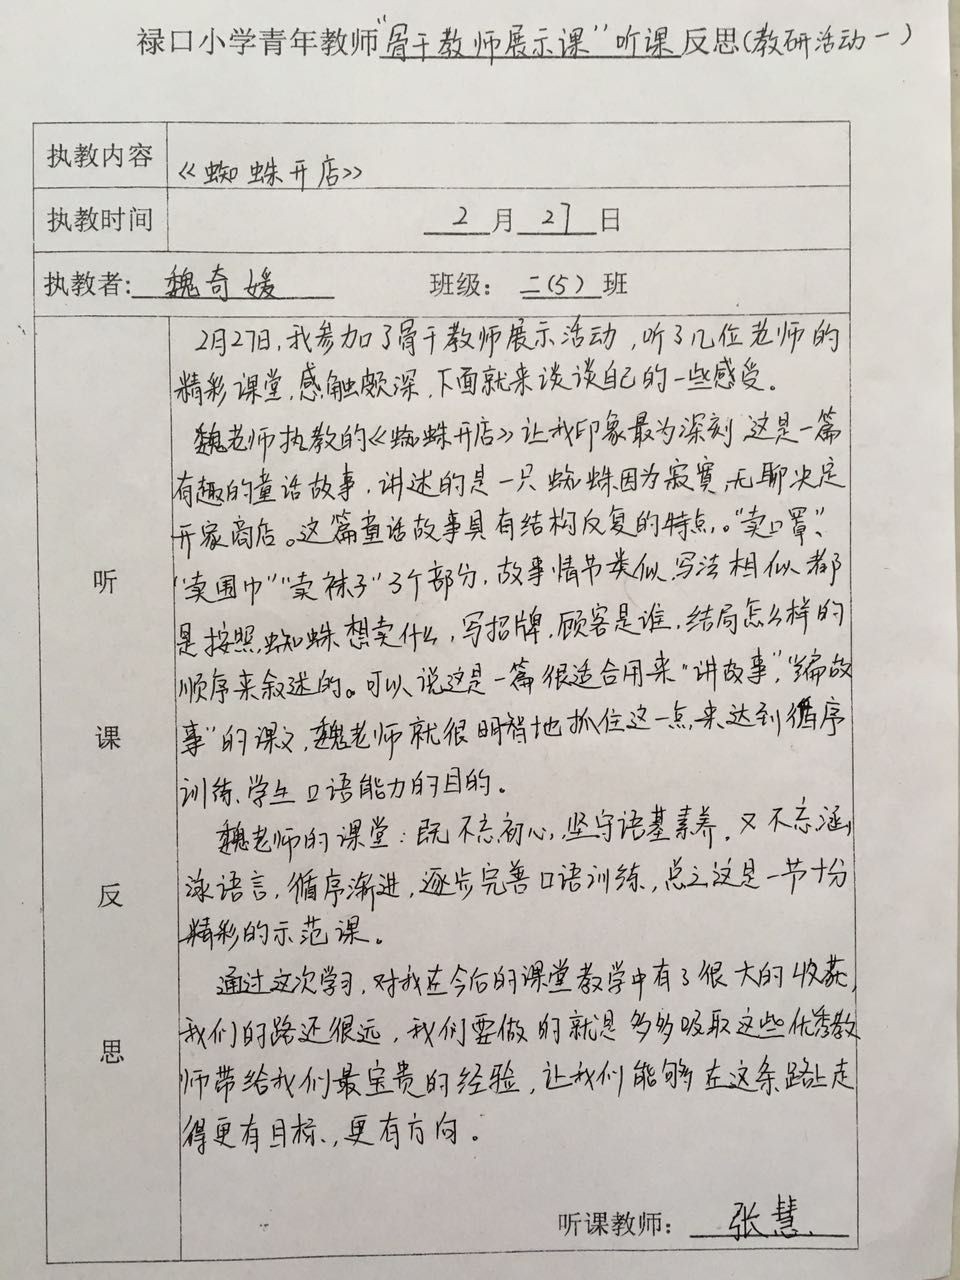 禄口小学青年教师“骨干教师展示课”听课反思(教研活动一)
执教内容 《蜘蛛开店》
执教时间 2月27日
执教者: 魏奇媛 班级: 二(5)班
听课反思
2月27日,我参加了骨干教师展示活动,听了几位老师的
精彩课堂,感触颇深,下面就来谈谈自己的一些感受。
魏老师执教的《蜘蛛开店》让我印象最为深刻 这是一篇
有趣的童话故事,讲述的是一只蜘蛛因为寂寞,无聊决定
开家商店。这篇童话故事具有结构反复的特点,。“卖口罩”、
“卖围巾”“卖袜子”3个部分,故事情节类似,写法相似 都
是按照,蜘蛛想卖什么,写招牌,顾客是谁,结局怎么样的
顺序来叙述的。可以说这是一篇很适合用来“讲故事”,“编故
事”的课文,魏老师就很明智地抓住这一点,来达到循序
训练、学生口语能力的目的。
魏老师的课堂:既不忘初心,坚守语基素养,又不忘涵
泳语言,循序渐进,逐步完善口语训练,总之这是一节十分
精彩的示范课。
通过这次学习,对我在今后的课堂教学中有了很大的收获,
我们的路还很远,我们要做的就是多多吸取这些优秀教
师带给我们最宝贵的经验,让我们能够在这条路上走
得更有目标、更有方向。
听课教师: 张慧